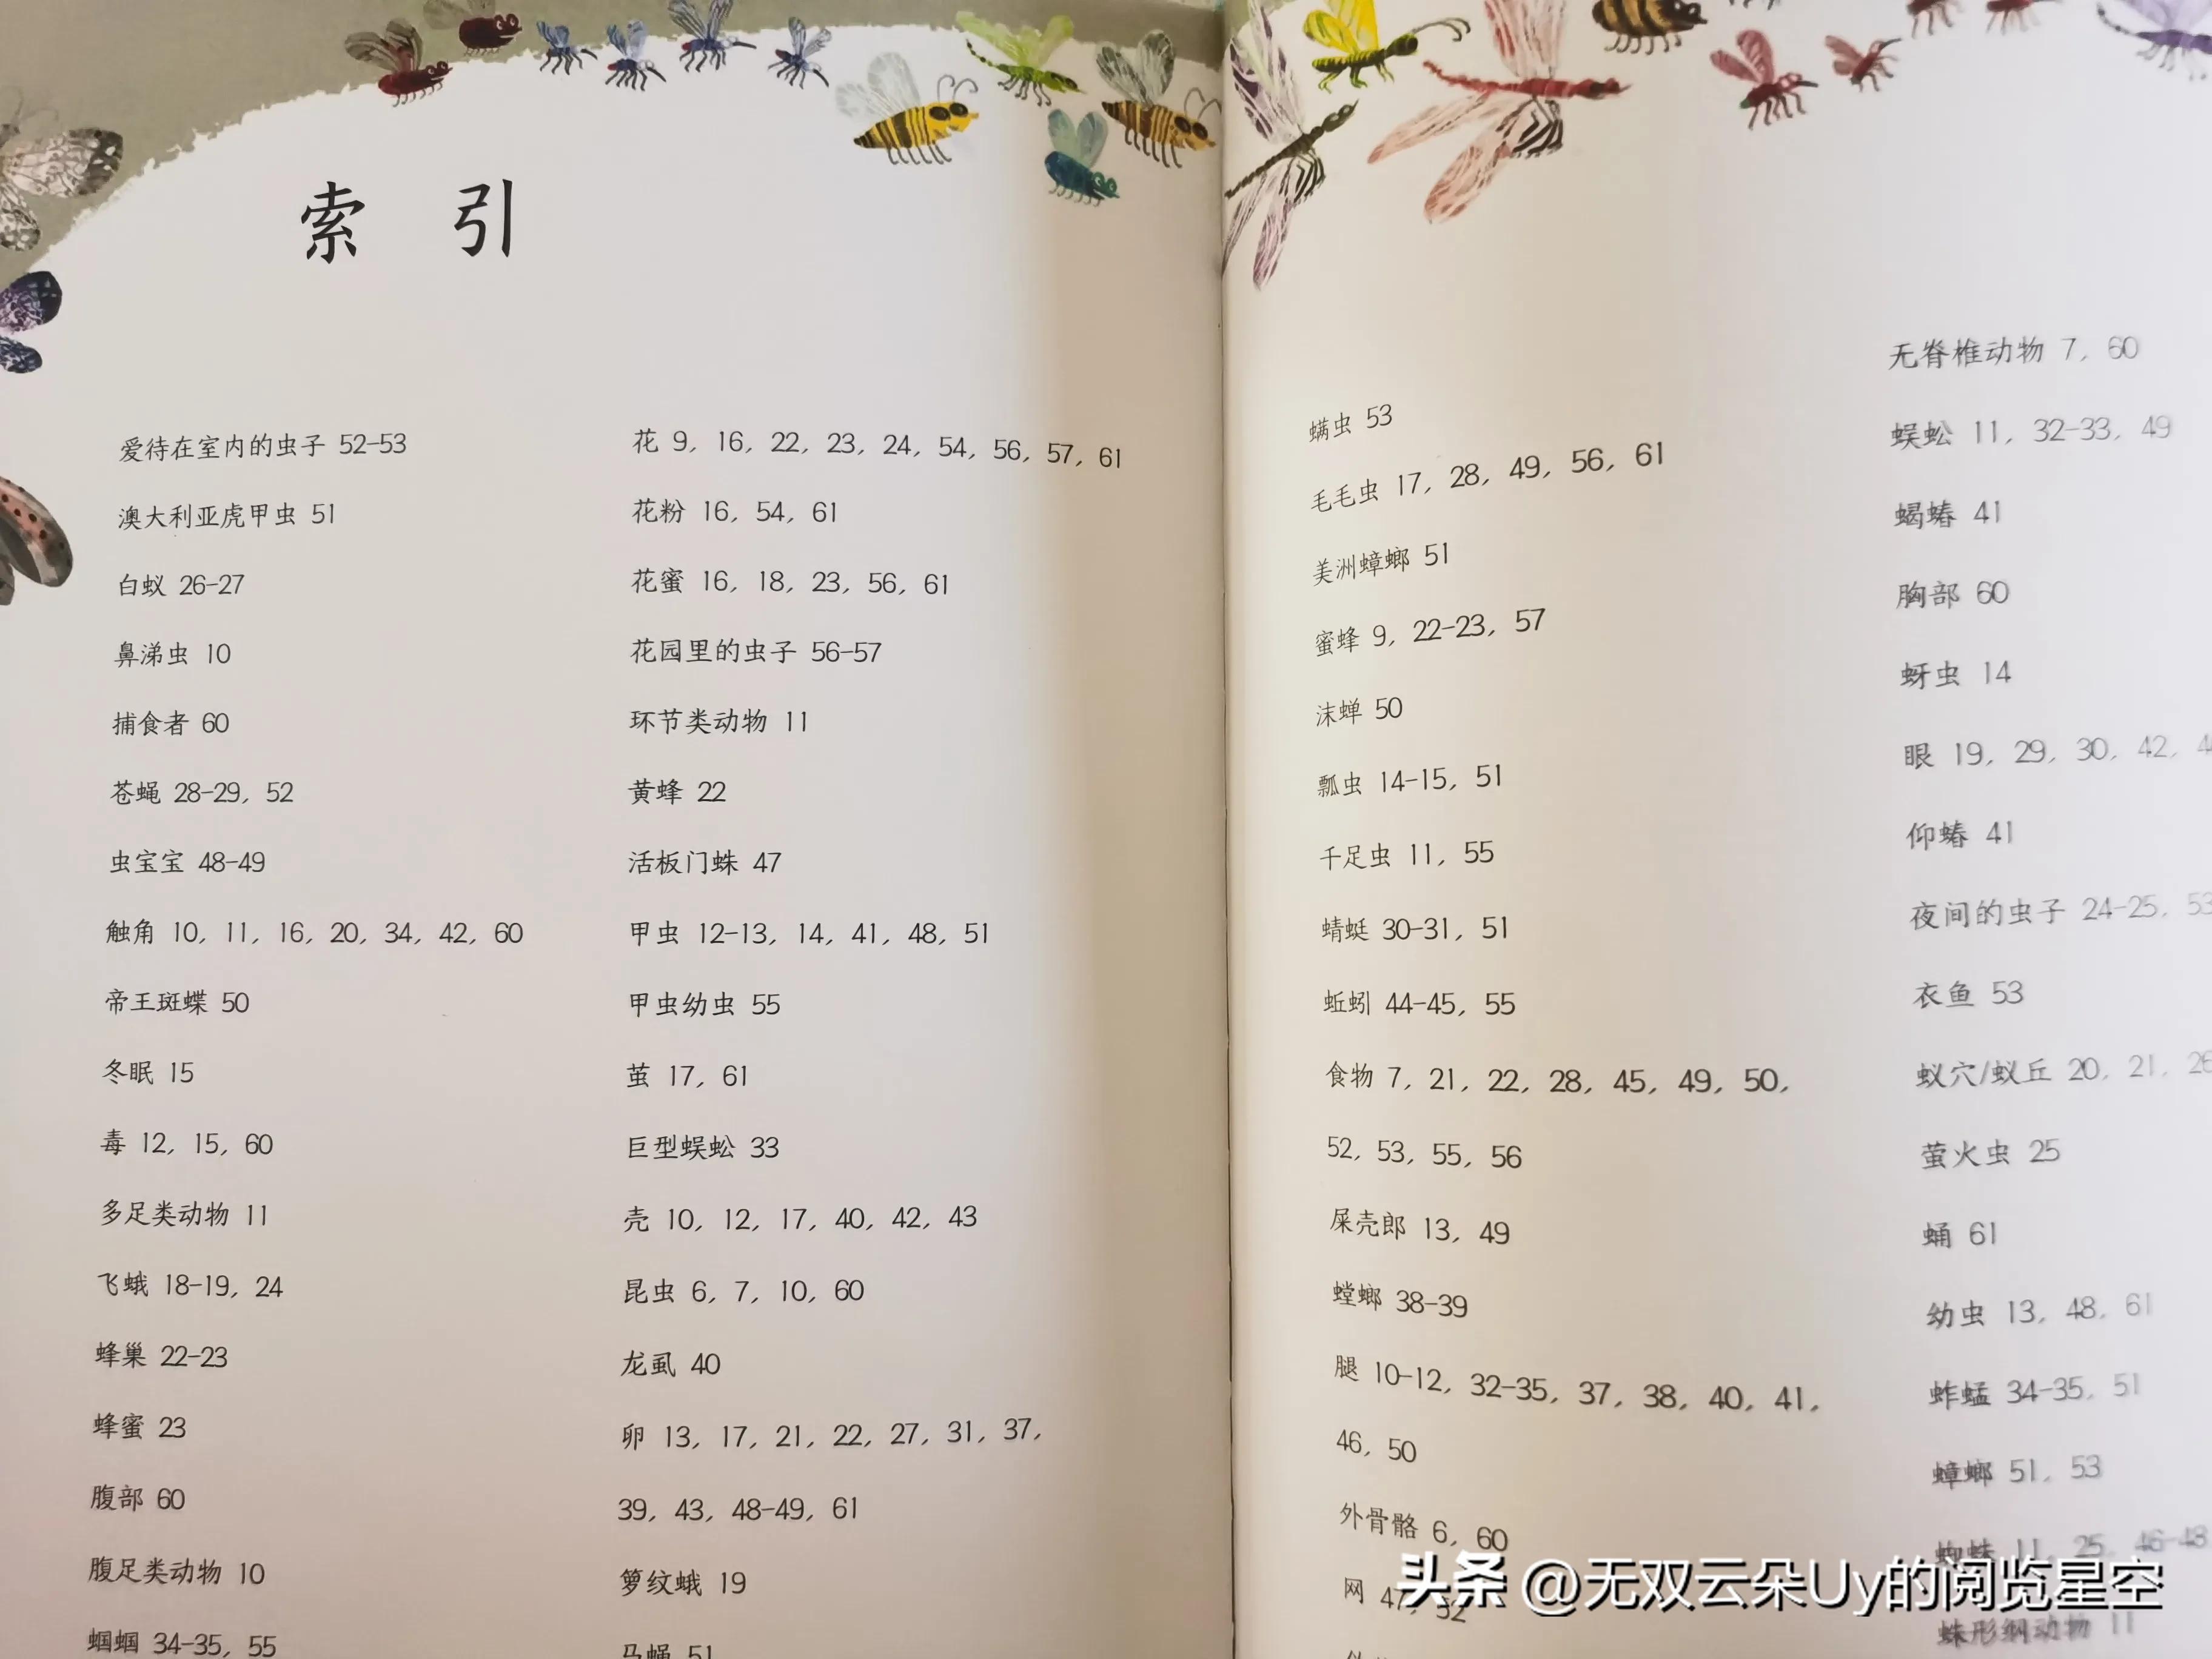 索 引
爱待在室内的虫子 52-53
澳大利亚虎甲虫 51
白蚁 26-27
鼻涕虫 10
捕食者 60
苍蝇 28-29, 52
虫宝宝 48-49
触角 10, 11, 16, 20, 34, 42, 60
帝王斑蝶 50
冬眠 15
毒 12, 15, 60
多足类动物 11
飞蛾 18-19, 24
蜂巢 22-23
蜂蜜 23
腹部 60
腹足类动物 10
蝈蝈 34-35, 55
花 9, 16, 22, 23, 24, 54, 56, 57, 61
花粉 16, 54, 61
花蜜 16, 18, 23, 56, 61
花园里的虫子 56-57
环节类动物 11
黄蜂 22
活板门蛛 47
甲虫 12-13, 14, 41, 48, 51
甲虫幼虫 55
茧 17, 61
巨型蜈蚣 33
壳 10, 12, 17, 40, 42, 43
昆虫 6, 7, 10, 60
龙虱 40
卵 13, 17, 21, 22, 27, 31, 37,
39, 43, 48-49, 61
箩纹蛾 19
马蝇 51
螨虫 53
毛毛虫 17, 28, 49, 56, 61
美洲蟑螂 51
蜜蜂 9, 22-23, 57
沫蝉 50
瓢虫 14-15, 51
千足虫 11, 55
蜻蜓 30-31, 51
蚯蚓 44-45, 55
食物 7, 21, 22, 28, 45, 49, 50,
52, 53, 55, 56
屎壳郎 13, 49
螳螂 38-39
腿 10-12, 32-35, 37, 38, 40, 41,
46, 50
外骨骼 6, 60
网 47, 52
无脊椎动物 7, 60
蜈蚣 11, 32-33, 49
蝎蝽 41
胸部 60
蚜虫 14
眼 19, 29, 30, 42,
仰蝽 41
夜间的虫子 24-25, 53
衣鱼 53
蚁穴/蚁丘 20, 21, 26
萤火虫 25
蛹 61
幼虫 13, 48, 61
蚱蜢 34-35, 51
蟑螂 51, 53
蜘蛛 11, 25, 46-48
蛛形纲动物 11
头条 @无双云朵Uy的阅览星空